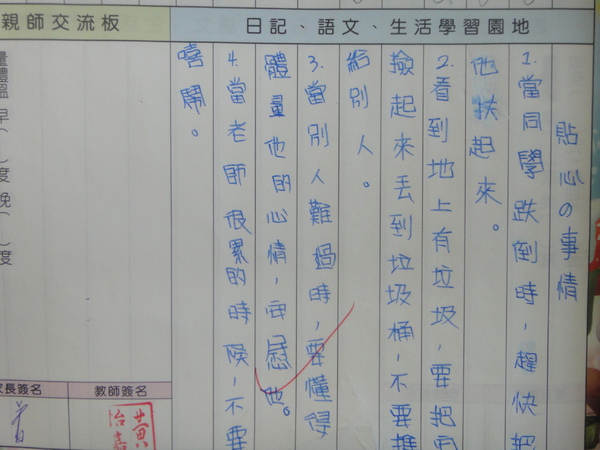 日記、語文、生活學習園地
貼心の事情
1.當同學跌倒時,趕快把
他扶起來。
2.看到地上有垃圾,要把
撿起來丟到垃圾桶,不要
給別人。
3.當別人難過時,要懂得
體量他的心情,安慰他。
4.當老師很累的時候,不要
嘻鬧。
親師交流板
量體溫 早( )度 晚( )度
教師簽名
長簽名
黃怡嘉